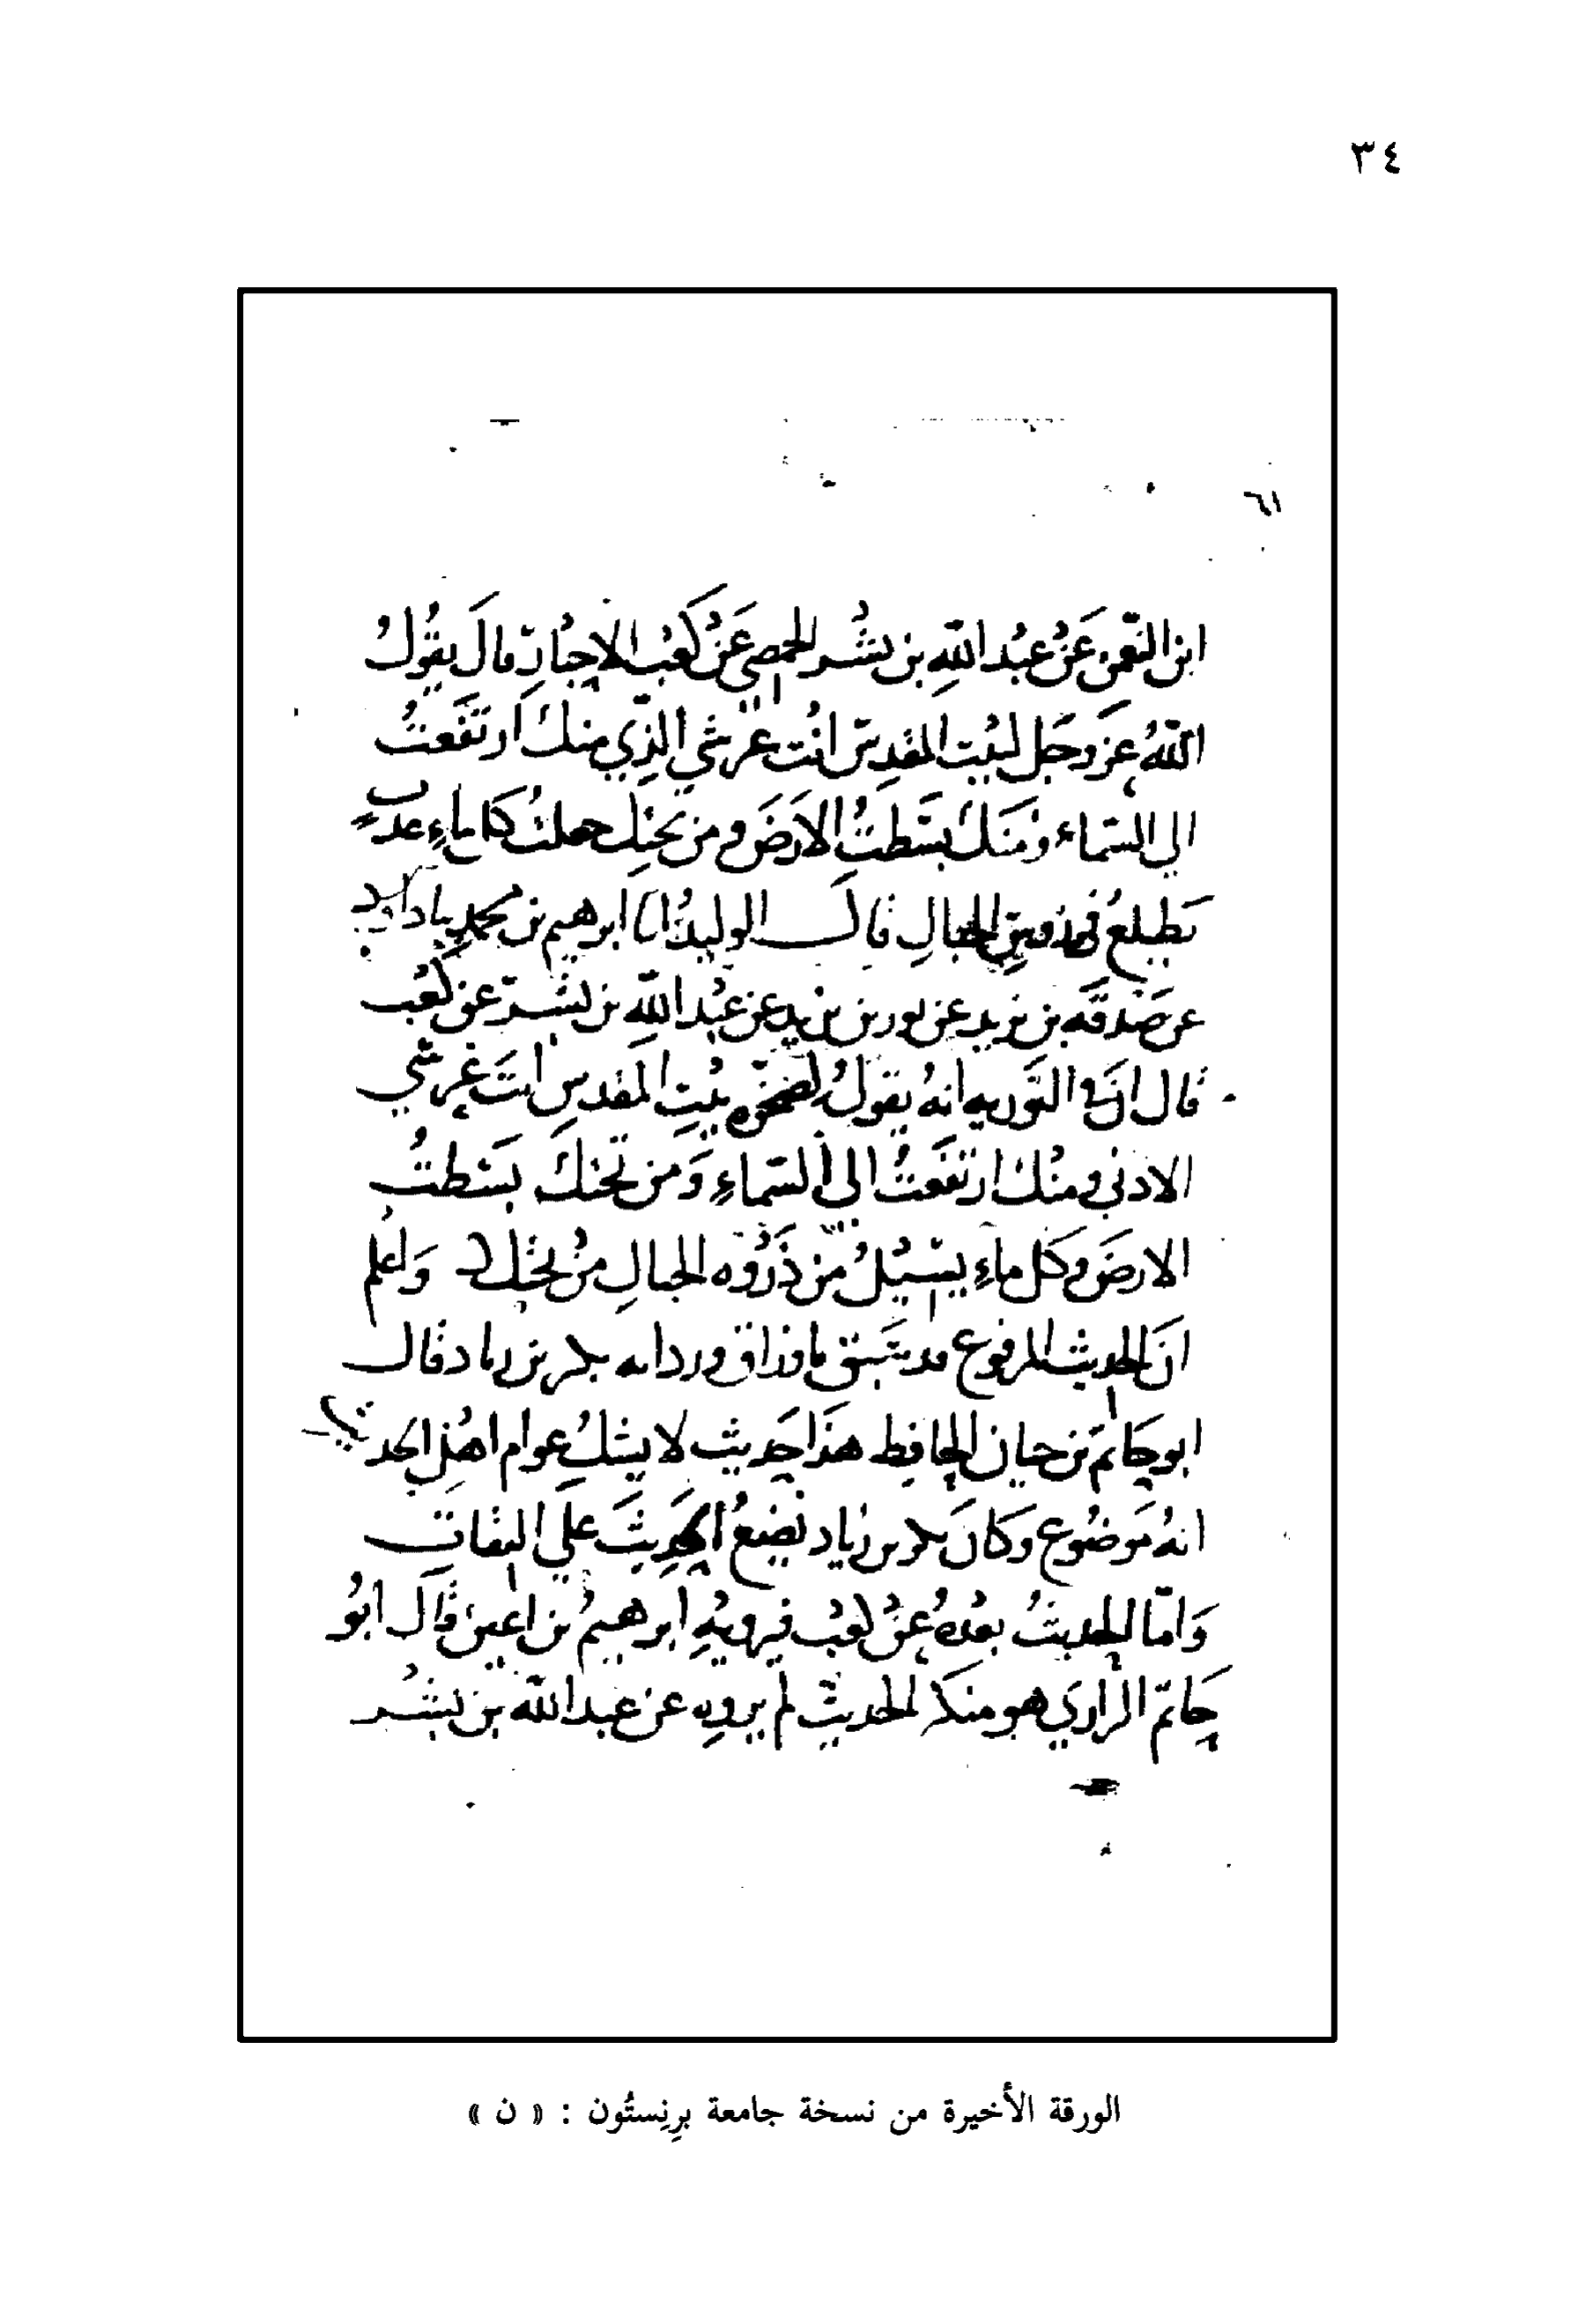 ٣٤
٦١
ابن النعمن عَنْ عبْد اللهِ بن بشْر الحمصي عَنْ كَعْب الاحبَارِ قالَ يقُولُ
اللهُ عز وجَل لبيْت المقدِس انْت عرشي الذِي منك ارتفَعتُ
الى السَّماء ومنكَ بسَطتُ الارَضَ ومن تحتِك جعلتُ كل ماءٍ عذبٍ
يَطلعُ في روسِ الجبالِ قالَ الوليدُ انا ابرهيم بن محمد يا داود
عن صَدقَه بن يزيد عن ثور بن يزيد عن عبْد اللهِ بن بشْر عن كعْب
قال انَّ في التَّوريه انهُ يقولُ لصخرَه بيْتِ المقدسِ انتَ عرشي
الادنى ومنْك ارتفَعتُ الى السَّماءِ وَمن تحتكَ بسَطتُ
الارضَ وكل ماءٍ يسيْلُ منْ ذرْوَه الجبالِ منْ تحتك وَاعلم
انَّ الحديث المرفوع قد سَبق باوراق ورد انه بكر بن زياد قال
ابو حَاتم بن حبان الحافظ هذَا حَديث لا يشكُ عوام اهْل الحديث
انهُ مَوضُوع وكانَ بكر بن زيَاد يضعُ الحَديثَ على الثقاتِ
وَامَّا الحديثُ بعْدهُ عنْ كعْب فيرويْهِ ابرهيمُ بن اعين قالَ ابُو
حَاتم الرازي هو منكر الحديث لم يروه عن عبد الله بن بشْر
الورقة الأخيرة من نسخة جامعة برِنِستُون : « ن »